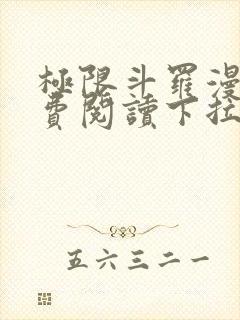 極限斗羅漫
費閱讀下拉
五六三二一